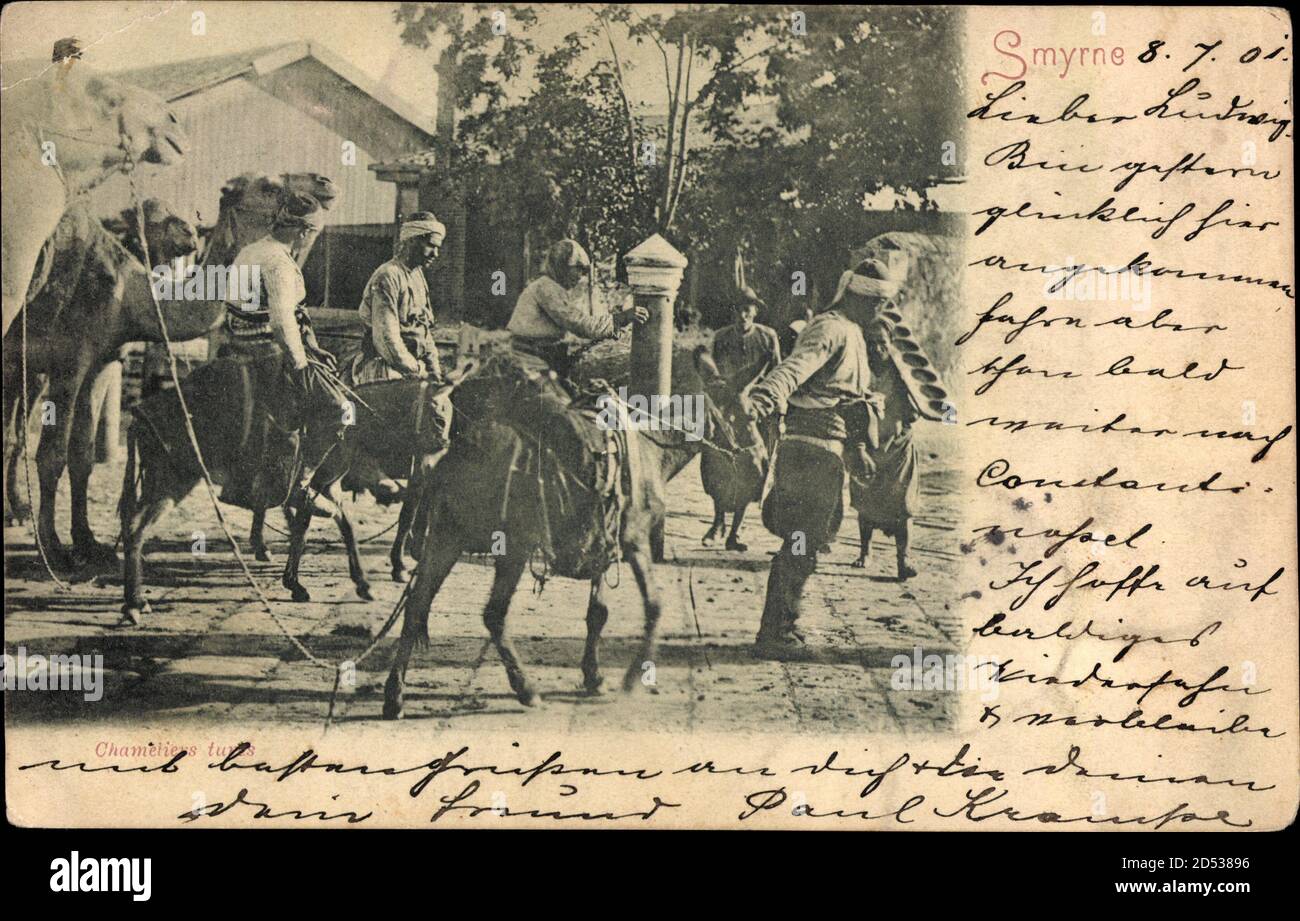 Smyrne 8. 7. 01.
Lieber Ludwig.
Bin gestern
glücklich hier
angekommen
fahre aber
schon bald
weiter nach
Constanti-
nopel.
Ich hoffe auf
baldiges
Wiedersehn
& verbleibe
Chameliers turcs
mit besten Grüßen an dich & die deinen
Dein Freund Paul
alamy
Image ID: 2D53896
www.alamy.com